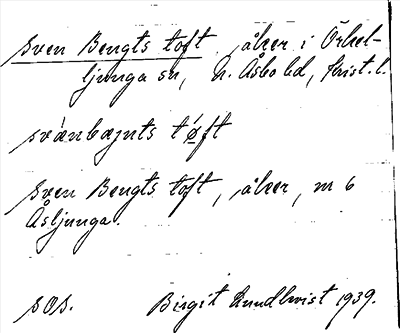 Sven Bengts toft åker i Örkel-
ljunga sn, N. Åsbo hd, Krist. l.
svæ̀nbæŋts tøft
Sven Bengts toft, åker, m 6
Åsljunga.
SOS. Birgit Lundkvist 1939.